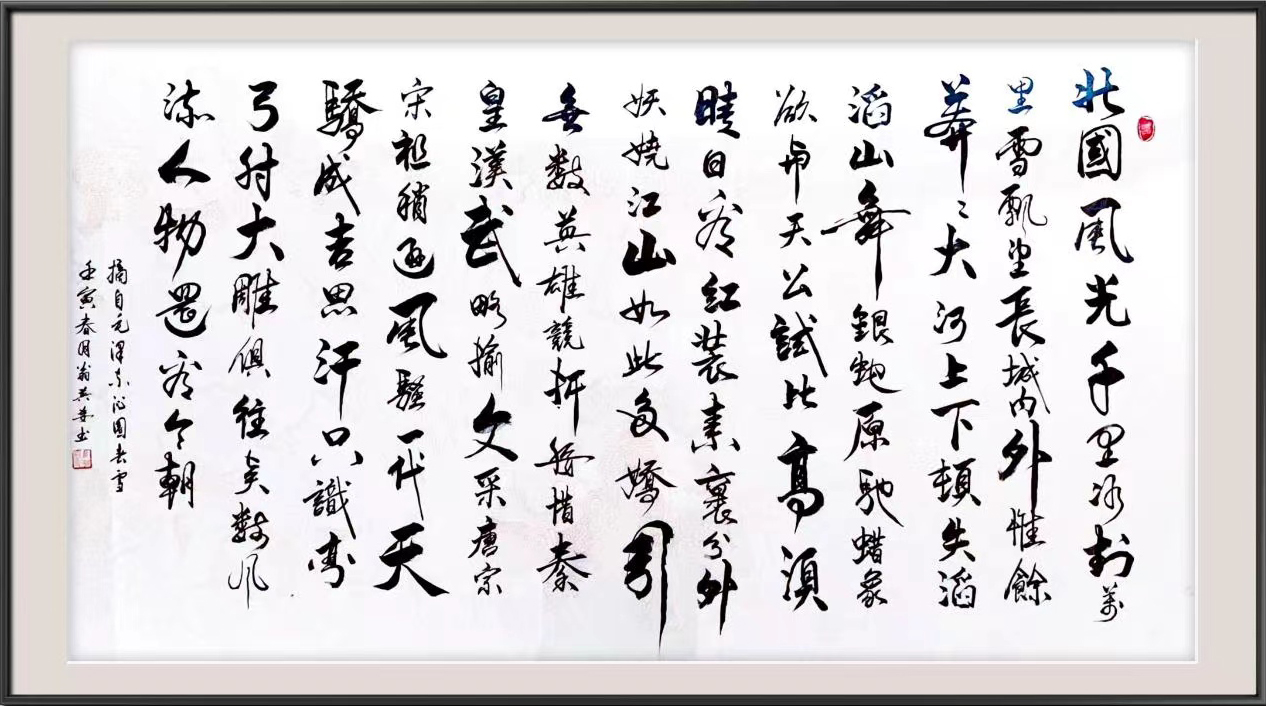 北國風光千里冰封萬
里雪飄望長城内外惟餘
莽〻大河上下頓失滔
滔山舞銀虵原馳蜡象
欲與天公試比高須
晴日看紅裝素裹分外
妖嬈江山如此多嬌引
無數英雄競折腰惜秦
皇漢武略輸文采唐宗
宋祖稍遜風騷一代天
驕成吉思汗只識彎
弓射大雕俱往矣數風
流人物還看今朝
摘自毛澤東沁園春雪
壬寅春月翁书